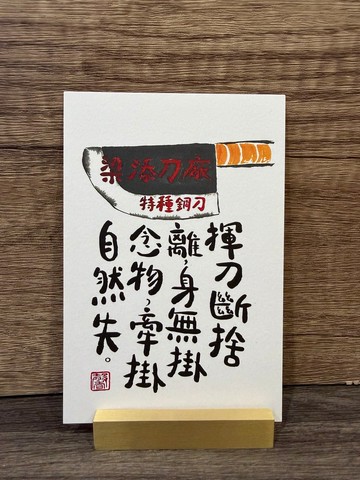 梁添刀廠
特種鋼刀
揮刀斷捨
離，身無掛
念物，牽掛
自然失。